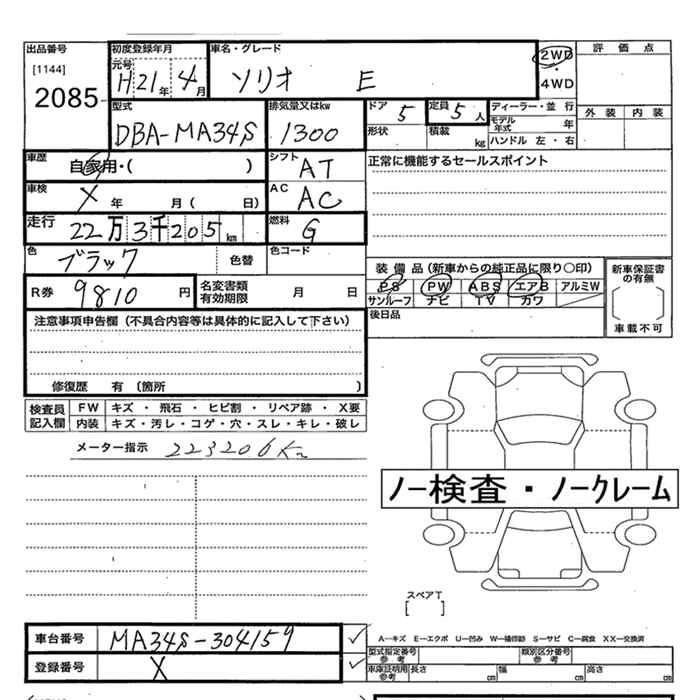 出品番号
[1144]
2085
初度登録年月
元号
H21年 4月
車名・グレード
ソリオ E
2WD
・
4WD
評価点
外装 内装
型式
DBA-MA34S
排気量又はkw
1300
ドア
5
定員
5人
形状
積載
kg
ディーラー・並 行
モデル年式 年
ハンドル 左・右
車歴
自家用・( )
シフト
AT
正常に機能するセールスポイント
車検
X 年 月( 日)
AC
AC
走行
22万3千205km
燃料
G
色
ブラック
色替
色コード
R券
9810円
名変書類
有効期限 月 日
装備品(新車からの純正品に限り○印)
PS PW ABS エアB アルミW
サンルーフ ナビ TV カワ
後日品
新車保証書
の有無
車載不可
注意事項申告欄(不具合内容等は具体的に記入して下さい)
修復歴 有〔箇所 〕
検査員
記入欄
FW キズ・飛石・ヒビ割・リペア跡・X要
内装 キズ・汚レ・コゲ・穴・スレ・キレ・破レ
メーター指示 223206Km
ノー検査・ノークレーム
スペアT
[ ]
車台番号 MA34S-304159
登録番号 X
A―キズ E―エクボ U―凹み W―補修跡 S―サビ C―腐食 XX―交換済
型式指定番号
参考
類別区分番号
参考
車庫証明用
参考
長さ cm 幅 cm 高さ cm